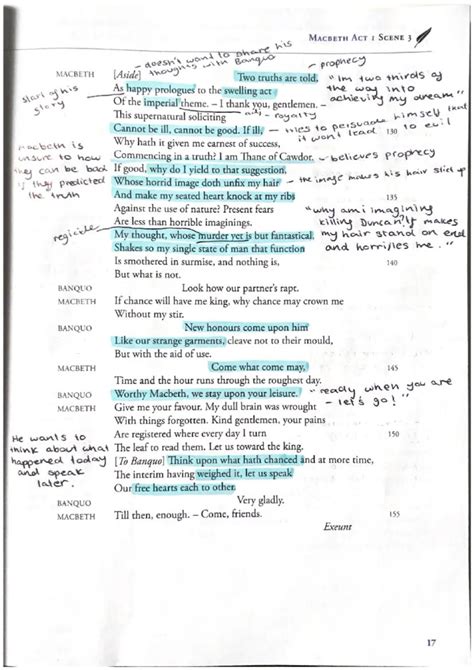 MACBETH ACT 1 SCENE 3
- doesn't want to share his
thoughts with Banquo
prophecy
MACBETH [Aside] Two truths are told,
"Im two thirds of
the way into
achieving my dream"
start of his
story
As happy prologues to the swelling act
Of the imperial theme. – I thank you, gentlemen. –
royalty
This supernatural soliciting
Cannot be ill, cannot be good. If ill, 130
- tries to persuade himself that
it wont lead to evil
Why hath it given me earnest of success,
Macbeth is
unsure to how
they can be bad
if they predicted
the truth
Commencing in a truth? I am Thane of Cawdor.
- believes prophecy
If good, why do I yield to that suggestion,
Whose horrid image doth unfix my hair
- the image makes his hair stick up
And make my seated heart knock at my ribs 135
Against the use of nature? Present fears
Are less than horrible imaginings.
"why am i imagining
killing Duncan? It makes
my hair stand on end
and horrifies me."
regicide
My thought, whose murder yet is but fantastical,
Shakes so my single state of man that function
Is smothered in surmise, and nothing is, 140
But what is not.
BANQUO Look how our partner's rapt.
MACBETH If chance will have me king, why chance may crown me
Without my stir.
BANQUO New honours come upon him
Like our strange garments, cleave not to their mould,
But with the aid of use.
MACBETH Come what come may, 145
Time and the hour runs through the roughest day.
BANQUO Worthy Macbeth, we stay upon your leisure.
"ready when you are
- let's go!"
MACBETH Give me your favour. My dull brain was wrought
With things forgotten. Kind gentlemen, your pains
Are registered where every day I turn 150
He wants to
think about what
happened today
and speak
later.
The leaf to read them. Let us toward the king.
[To Banquo] Think upon what hath chanced and at more time,
The interim having weighed it, let us speak
Our free hearts each to other.
BANQUO Very gladly.
MACBETH Till then, enough. – Come, friends. 155
Exeunt
17